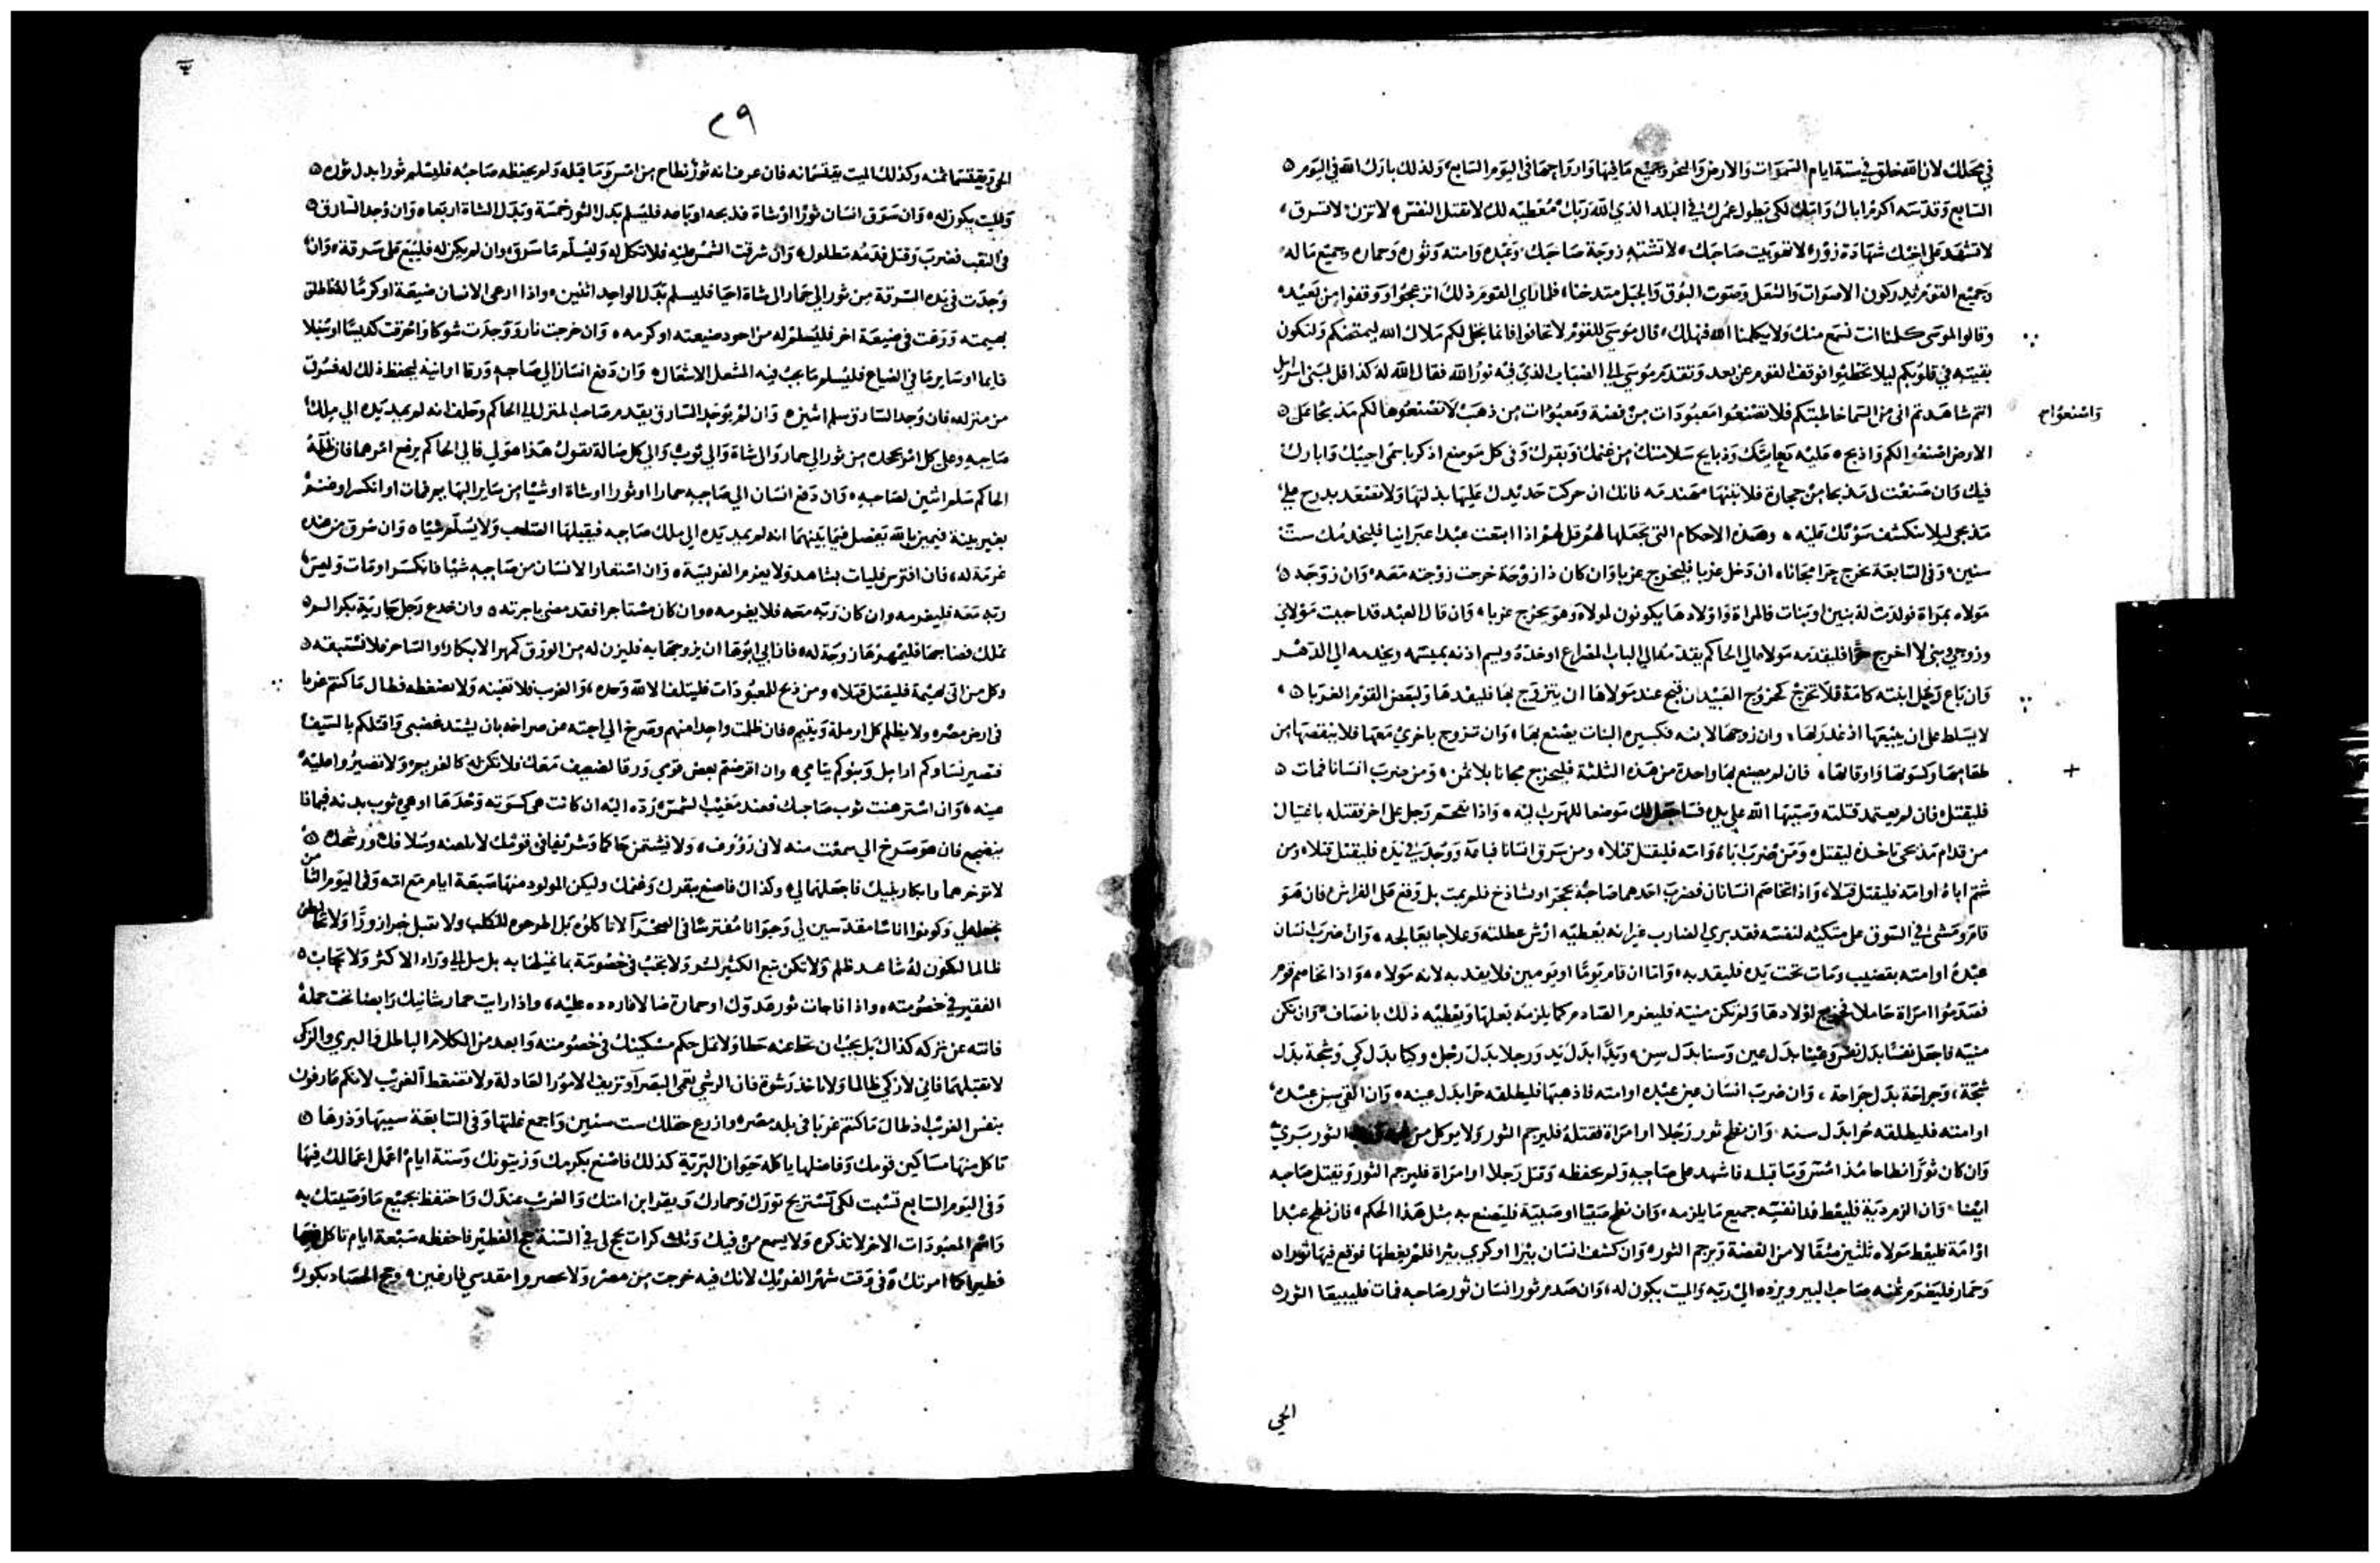 في محلك لان الله خلق في ستة ايام السموات والارض والبحر وجميع ما فيها واراح في اليوم السابع ولذلك بارك الله في اليوم
السابع وقدسه اكرم اباك وامك لكي يطول عمرك في البلد الذي الله ربك معطيه لك لا تقتل النفس لا تزن لا تسرق
لا تشهد على اخيك شهادة زور لا تهو بيت صاحبك لا تشته زوجة صاحبك وعبده وامته وثوره وحماره وجميع ماله
وجميع القوم يدركون الاصوات والشعل وصوت البوق والجبل متدخنا فلما راي القوم ذلك انزعجوا ووقفوا من بعيد
وقالوا لموسى كلمنا انت نسمع منك ولا يكلمنا الله فنهلك قال موسى للقوم لا تخافوا فانما تجلى لكم ملاك الله ليمتحنكم ولتكون
بقيته في قلوبكم ليلا تخطئوا فوقف القوم عن بعد وتقدم موسى الى الضباب الذي فيه نور الله فقال الله له كذا قل لبني اسرايل
انتم شاهدتم انى من السما خاطبتكم فلا تصنعوا معبودات من فضة ومعبودات من ذهب لا تصنعوها لكم مذبحا على
واصنعوا
الارض اصنعوا لكم واذبح عليه صعايدك وذبايح سلامتك من غنمك وبقرك وفى كل موضع اذكر باسمى اجيبك وابارك
فيك وان صنعت لى مذبحا من حجارة فلا تبنها مهندمه فانك ان حركت حديدك عليها بذلتها ولا تصعد بدرج على
مذبحى ليلا تنكشف سوتك عليه وهذه الاحكام التى تجعلها لهم قل لهم اذا ابتعت عبدا عبرانيا فليخدمك ست
سنين وفى السابعة يخرج حرا مجانا ان دخل عزبا فليخرج عزبا وان كان ذا زوجة خرجت زوجته معه وان زوجه
مولاه بمراة فولدت له بنين او بنات فالمراة واولادها يكونون لمولاه وهو يخرج عزبا وان قال العبد قد احببت مولاي
وزوجي وبنى لا اخرج حرا فليقدمه مولاه الى الحاكم يقدمه الى الباب المصراع او عنده ويسم اذنه بميسمه ويخدمه الى الدهر
وان باع رجل ابنته كامة فلا تخرج كخروج العبيد ان قبح عند مولاها ان يتزوج بها فليفدها ولبعض القوم الغربا
لا يسلط على ان يبيعها اذ غدر بها وان زوجها لابنه فكسيره البنات يصنع بها وان تزوج باخري معها فلا ينقصها من
طعامها وكسوتها واوقاتها فان لم يصنع بها واحدة من هذه الثلثة فليخرج مجانا بلا ثمن ومن ضرب انسانا فمات
فليقتل فان لم يعتمد قتلته وسببها الله على يده فساجعل لك موضعا للهرب اليه واذا تحتم رجل على اخر فقتله باغتيال
من قدام مذبحى تاخذه ليقتل ومن ضرب اباه وامه فليقتل قتلا ومن سرق انسانا فباعه ووجد في يده فليقتل قتلا ومن
شتم اباه او امه فليقتل قتلا واذا تخاصم انسانان فضرب احدهما صاحبه بحجر او بشاذخ فلم يمت بل وقع على الفراش فان هو
قام ومشى في السوق على متكيه لنفسه فقد بري الضارب غير انه يعطيه ارش عطلته وعلاجا يعالجه وان ضرب انسان
عبده او امته بقضيب ومات تحت يده فليقد به واما ان قام يوما او يومين فلا يقد به لانه مولاه واذا تخاصم قوم
فصدموا امراة حاملا فخرج اولادها ولم تكن منية فليغرم الصادم كما يلزمه بعلها ويعطيه ذلك بانصاف وان تكن
منية فاجعل نفسا بدل نفس وعينا بدل عين وسنا بدل سن ويدا بدل يد ورجلا بدل رجل وكيا بدل كي وشجة بدل
شجة وجراحة بدل جراحة وان ضرب انسان عين عبده او امته فاذهبها فليطلقه حرا بدل عينه وان القى سن عبده
او امته فليطلقه حرا بدل سنه وان نطح ثور رجلا او امراة فقتله فليرجم الثور ولا يوكل من الثور بري
وان كان ثورا نطاحا مذ امس وما قبله فاشهد على صاحبه ولم يحفظه وقتل رجلا او امراة فليرجم الثور ويقتل صاحبه
ايضا وان الزم دية فليعط فدا نفسه جميع ما يلزمه وان نطح صبيا او صبية فليصنع به مثل هذا الحكم فان نطح عبدا
او امة فليعط مولاه ثلثين مثقالا من الفضة ويرجم الثور وان كشف انسان بيرا او كري بيرا فلم يغطها فوقع فيها ثور
وحمار فليغرم ثمنه صاحب البير ويرده الى ربه والميت يكون له وان صدم ثور انسان ثور صاحبه فمات فليبيعا الثور
الحي
٢٩
الحي ويقتسما ثمنه وكذلك الميت يقتسمانه فان عرف انه ثور نطاح من امس وما قبله ولم يحفظه صاحبه فليسلم ثورا بدل ثوره
والميت يكون له وان سرق انسان ثورا او شاة فذبحه او باعه فليسلم بدل الثور خمسة وبدل الشاة اربعا وان وجد السارق
في النقب فضرب وقتل فدمه مطلول وان شرقت الشمس عليه فلا تكل له وليسلم ما سرق وان لم يكن له فليبع على سرقة وان
وجدت في يده السرقة من ثور الى حمار الى شاة احيا فليسلم بدل الواحد اثنين واذا ارعى الانسان ضيعة او كرما فاطلق
بهيمته ورعت في ضيعة اخر فليسلم له من اجود ضيعته او كرمه وان خرجت نار ووجدت شوكا واحرقت كديسا او سنبلا
قايما او ساير ما في الضياع فليسلم ما يجب فيه المشعل الاشعال وان دفع انسان الى صاحبه ورقا او انية ليحفظ ذلك له فسرق
من منزله فان وجد السارق سلم اثنين وان لم يوجد السارق يقدم صاحب المنزل الى الحاكم وحلف انه لم يمد يده الى ملك
صاحبه وعلى كل امر يجحده من ثور الى حمار والى شاة والى ثوب والى كل ضالة يقول هذا هو لي فالى الحاكم يرفع امرهما فان ظلمه
الحاكم سلم اثنين لصاحبه وان دفع انسان الى صاحبه حمارا او ثورا او شاة او شيا من ساير البهايم فمات او انكسر او
بغير بينة فيمين بالله تفصل فيما بينهما انه لم يمد يده الى ملك صاحبه فيقبلها الصاحب ولا يسلم شيا وان سرق من عنده
غرمه له فان افترس فليات بشاهد ولا يغرم الفريسة وان استعار الانسان من صاحبه شيا فانكسر او مات وليس
ربه معه فليغرمه وان كان ربه معه فلا يغرمه وان كان مستاجرا فقد مضى باجرته وان خدع رجل جارية بكرا لم
تملك فضاجعها فليمهرها زوجة له فان ابي ابوها ان يزوجها به فليزن له من الورق كمهر الابكار والساحر فلا تستبقه
وكل من اتى بهيمة فليقتل قتلا ومن ذبح للمعبودات فليتلف الا لله وحده والغريب فلا تغبنه ولا تضغطه فطال ما كنتم غربا
في ارض مصر ولا يظلم كل ارملة ويتيم فان ظلمت واحدا منهم وصرخ الى اجبته عن صراخه بان يشتد غضبى واقتلكم بالسيف
فتصير نساوكم ارامل وبنوكم يتامي وان اقرضتم بعض قومي ورقا لضعيف معك فلا تكن له كالغريم ولا تصيروا عليه
عينه وان استرهنت ثوب صاحبك فعند مغيب الشمس رده اليه ان كانت هى كسوته وحدها او هي ثوب بدنه فيماذا
ينضجع فان هو صرخ الى سمعت منه لانى رووف ولا يشتمن حاكما وشريفا في قومك لا تلعنه وسلافك ورشحك
لا توخرهما وابكار بنيك فاجعلها لي وكذاك فاصنع ببقرك وغنمك وليكن المولود منها سبعة ايام مع امه وفى اليوم الثامن
تجعله لي وكونوا اناسا مقدسين لي وحيوانا مفترسا فى الصحرا لا تاكلوه بل اطرحوه للكلب ولا تقبل خبرا زورا ولا تخالطن
ظالما لتكون له شاهد ظلم ولا تكن تبع الكثير لسو ولا تجب في خصومة بما تميلها به بل مل الى وراء الاكثر ولا تحاب
الفقير في خصومته واذا فاجات ثور عدوك او حماره ضالا فاردده عليه واذا رايت حمار شانيك رابضا تحت حمله
فانته عن تركه كذاك بل يجب ان تحط عنه حطا ولا تمل حكم مسكينك في خصومته وابعد من الكلام الباطل والبري والزكي
لا تقتلهما فانى لا ازكي ظالما ولا تاخذ رشوة فان الرشى تعمى البصرا وتزيف الامور العادلة ولا تضغط الغريب لانكم عارفون
بنفس الغريب اذ طال ما كنتم غربا فى بلد مصر وازرع حقلك ست سنين واجمع غلتها وفى السابعة سيبها وذرها
تاكل منها مساكين قومك وفاضلها ياكله حيوان البرية كذلك فاصنع بكرمك وزيتونك وستة ايام اعمل اعمالك فيها
وفى اليوم السابع تسبت لكى تستريح ثورك وحمارك ويقر ابن امتك والغريب عندك واحتفظ بجميع ما وصيتك به
واسم المعبودات الاخر لا تذكره ولا يسمع من فيك وثلث كرات حج لى في السنة حج الفطير فاحفظه سبعة ايام تاكل فيها
فطيرا كما امرتك فى وقت شهر الفريك لانك فيه خرجت من مصر ولا مقدسي فارغين وحج الحصاد بكور